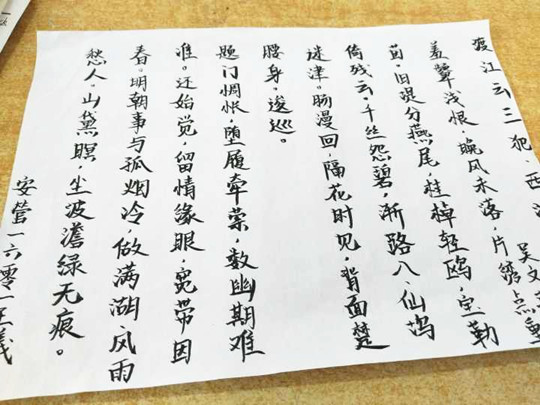 渡江云三�·西
吴文
羞颦浅恨，晚风未落，片绣点重
茵，旧混分燕尾，桂棹轻鸥，宝勒
倚残云。千丝怨碧，渐路入、仙坞
迷津。肠漫回，隔花时见，背面楚
腰身。逡巡。
题门惆怅，堕履牵萦，数幽期难
准。还始觉，留情缘眼，宽带因
春。明朝事与孤烟冷，做满湖、风雨
愁人。山黛暝，尘波澹绿无痕。
安管一六零一王義